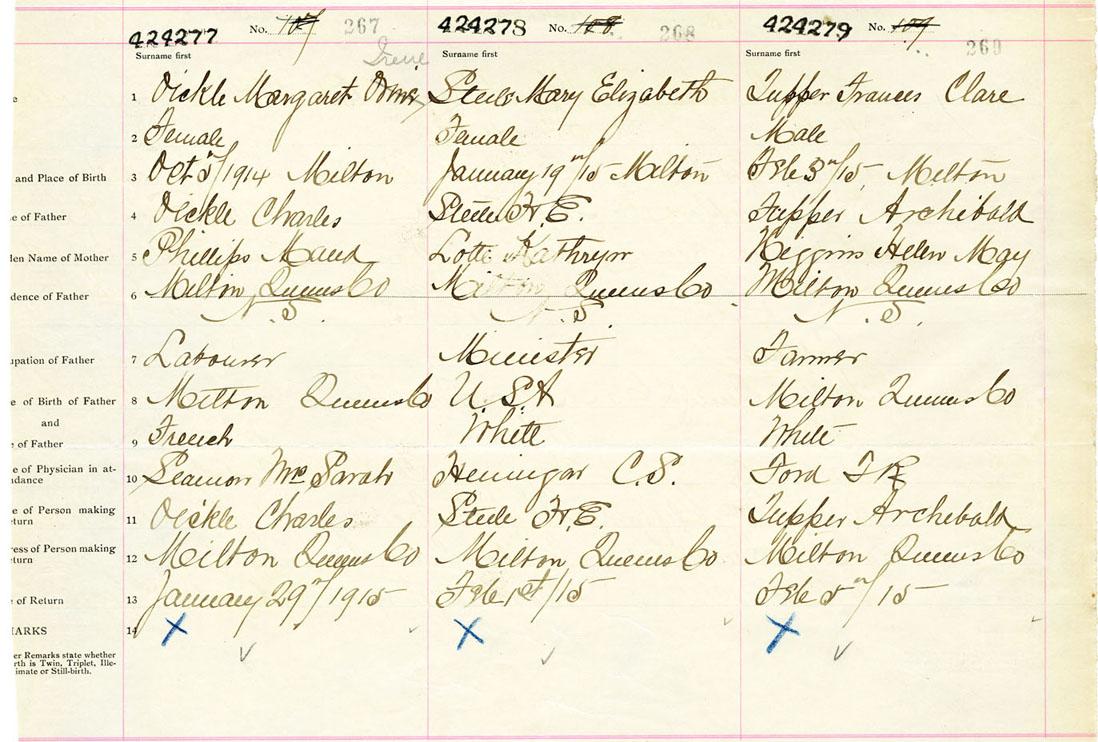 424277 No. 107 267 424278 No. 108 268 424279 No. 109 269
Surname first Irene Surname first Surname first
1 Dickle Margaret Steele Mary Elizabeth Tupper Frances Clare
2 Female Female Male
and Place of Birth 3 Oct 5th/1914 Milton January 19th/15 Milton Feb 3rd/15 Milton
e of Father 4 Dickle Charles Steele F. E. Tupper Archibald
den Name of Mother 5 Phillips Maud Kathryn Helen May
dence of Father 6 Milton Queens Co Milton, Queens Co Milton Queens Co
N.S. N.S. N.S.
upation of Father 7 Labourer Minister Farmer
e of Birth of Father 8 Milton Queens Co U.S.A Milton Queens Co
and
e of Father 9 French White White
e of Physician in at-
ndance 10 Seamon Mrs Sarah C. S. Ford
e of Person making
turn 11 Dickle Charles Steele F. E. Tupper Archibald
ress of Person making
turn 12 Milton Queens Co Milton, Queens Co Milton Queens Co
e of Return 13 January 29th/1915 Feb 1st/15 Feb 5th/15
MARKS 14 X X X
er Remarks state whether
rth is Twin, Triplet, Ille-
imate or Still-birth.